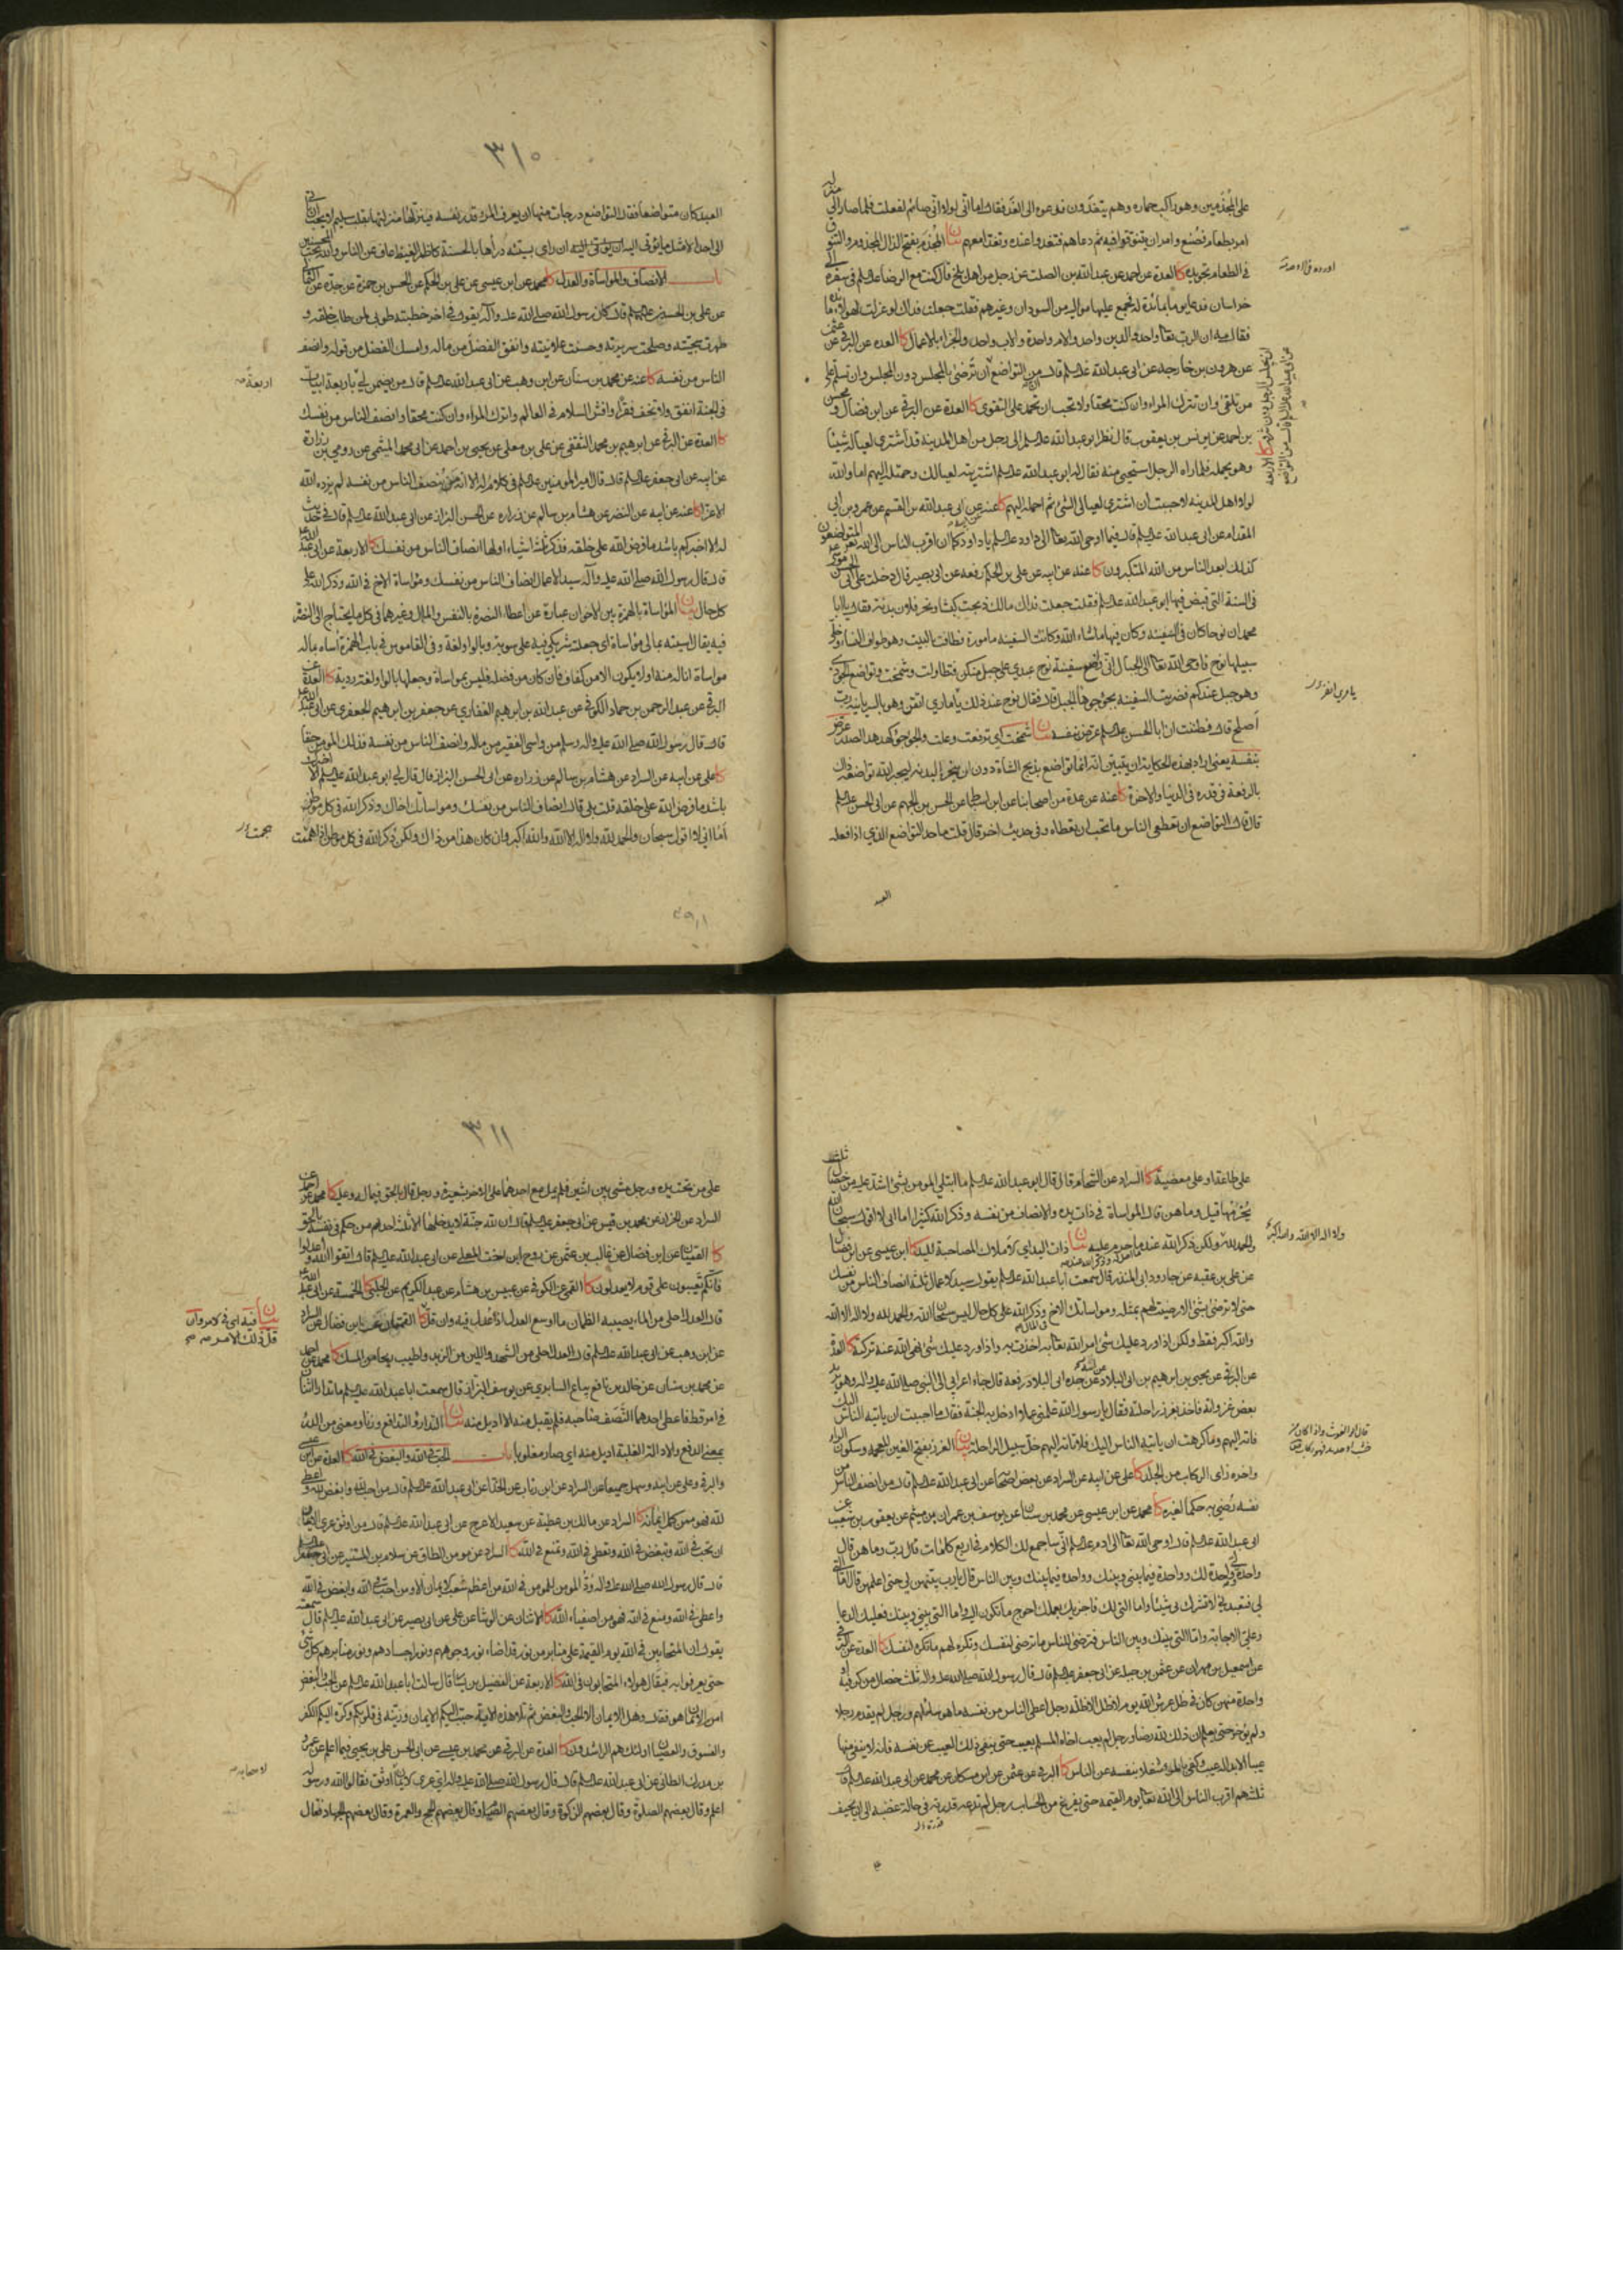 على المجذمين وهو راكب حماره وهم يتغدون فدعوه الى الغداء فقال اما انى لولا انى صائم لفعلت فلما صار الى
منزله
امر بطعام فصنع وامر ان يتنوقوا فيه ثم دعاهم فتغدوا عنده وتغدا معهم بيان المجذم بفتح الذال المجذوم والتنوق
في الطعام تجويده كا العدة عن احمد عن عبد الله بن الصلت عن رجل من اهل بلخ قال كنت مع الرضا عليه السلم في سفره الى
خراسان فدعا يوما بمائدة له فجمع عليها مواليه من السودان وغيرهم فقلت جعلت فداك لو عزلت لهؤلاء مائدة
فقال مه ان الرب تعا واحد والدين واحد والام واحدة والاب واحد والجزاء بالاعمال كا العدة عن البرقي عن عثمن
عن هرون بن خارجة عن ابى عبد الله عليه السلم قال من التواضع ان ترضى بالمجلس دون المجلس وان تسلم على
من تلقى وان تترك المراء وان كنت محقا ولا تحب ان تحمد على التقوى كا العدة عن البرقي عن ابن فضال و محسن
بن احمد عن يونس بن يعقوب قال نظر ابو عبد الله عليه السلم الى رجل من اهل المدينة قد اشترى لعياله شيئا
وهو يحمله فلما راه الرجل استحيى منه فقال له ابو عبد الله عليه السلم اشتريته لعيالك وحملته اليهم اما والله
لولا اهل المدينة لاحببت ان اشترى لعيالى الشئ ثم احمله اليهم كا عنه عن ابى عبد الله بن القسم عن عمرو بن ابى
المقدام عن ابى عبد الله عليه السلم قال فيما اوحى الله تعا الى داود عليه السلم يا داود كما ان اقرب الناس الى الله المتواضعون
كذلك ابعد الناس من الله المتكبرون كا عنه عن ابيه عن على بن الحكم رفعه عن ابى بصير قال دخلت على ابى الحسن موسى
في السنة التي قبض فيها ابو عبد الله عليه السلم فقلت جعلت فداك مالك ذبحت كبشا ونحر فلان بدنة فقال يا با
محمد ان نوحا كان في السفينة وكان فيها ما شاء الله وكانت السفينة مامورة فطافت بالبيت وهو طواف النساء وخلى
سبيلها نوح فاوحى الله تعا الى الجبال انى واضع سفينة نوح عبدى على جبل منكن فتطاولت وشمخت وتواضع الجودى
وهو جبل عندكم فضربت السفينة بجؤجؤها الجبل قال فقال نوح عند ذلك يا مارى اتقن وهو بالسريانية رب
اصلح قال فظننت ان ابا الحسن عليه السلم عرض بنفسه بيان شمخت اى ترفعت وعلت والجؤجؤ كهدهد الصدر عرض
بنفسه يعنى اراد بهذه الحكاية ان يتبين انه انما تواضع بذبح الشاة دون ان ينحر البدنة ليجبر الله تواضعه ذلك
بالرفعة في قدره في الدنيا والاخرة كا عنه عن عدة من اصحابنا عن ابن اسباط عن الحسن بن الجهم عن ابى الحسن عليه السلم
قال قال التواضع ان تعطى الناس ما تحب ان تعطاه وفي حديث اخر قال قلت ما حد التواضع الذى اذا فعله
العبد
٣١٠
العبد كان متواضعا فقال التواضع درجات منها ان يعرف المرء قدر نفسه فينزلها منزلتها بقلب سليم لا يحب ان ياتى
الى احد الا مثل ما يؤتى اليه ان راى سيئة دراها بالحسنة كاظم الغيظ عاف عن الناس والله يحب المحسنين
باب الانصاف والمواساة والعدل كا محمد عن ابن عيسى عن على بن الحكم عن الحسن بن حمزة عن جده عن الثمالى
عن على بن الحسين عليهما السلم قال كان رسول الله صلى الله عليه وآله يقول في اخر خطبته طوبى لمن طاب خلقه و
طهرت سجيته وصلحت سريرته وحسنت علانيته وانفق الفضل من ماله وامسك الفضل من قوله وانصف
الناس من نفسه كا عنه عن محمد بن سنان عن ابن وهب عن ابى عبد الله عليه السلم قال من يضمن لى باربعة ابيات
اربعة
في الجنة انفق ولا تخف فقرا وافش السلام في العالم واترك المراء وان كنت محقا وانصف الناس من نفسك
كا العدة عن البرقي عن ابرهيم بن محمد الثقفى عن على بن معلى عن يحيى بن احمد عن ابى محمد الميثمى عن رومى بن زرارة
عن ابيه عن ابى جعفر عليه السلم قال قال امير المومنين عليه السلم في كلام له الا انه من ينصف الناس من نفسه لم يزده الله
الا عزا كا عنه عن ابيه عن النضر عن هشام بن سالم عن زرارة عن الحسن البزاز عن ابى عبد الله عليه السلم قال في حديث
له الا اخبركم باشد ما فرض الله على خلقه فذكر ثلثة اشياء اولها انصاف الناس من نفسك كا الاربعة عن ابى عبد الله
قال قال رسول الله صلى الله عليه وآله سيد الاعمال انصاف الناس من نفسك ومواساة الاخ في الله وذكر الله على
كل حال بيان المؤاساة بالهمزة بين الاخوان عبارة عن اعطاء النصرة بالنفس والمال وغيرهما في كل ما يحتاج الى النصرة
فيه يقال آسيته بمالى مؤاساة اى جعلته شريكى فيه على سوية وبالواو لغة وفي القاموس في باب الهمزة آساه بماله
مواساة اناله منه او لا يكون الا من كفاف فان كان من فضلة فليس بمواساة وجعلها بالواو لغة ردية كا العدة عن
البرقي عن عبد الرحمن بن حماد الكوفي عن عبد الله بن ابرهيم الغفارى عن جعفر بن ابرهيم الجعفرى عن ابى عبد الله
قال قال رسول الله صلى الله عليه واله وسلم من واسى الفقير من ماله وانصف الناس من نفسه فذلك المومن حقا
كا على عن ابيه عن السراد عن هشام بن سالم عن زرارة عن ابى الحسن البزاز قال قال لى ابو عبد الله عليه السلم الا اخبرك
باشد ما فرض الله على خلقه قلت بلى قال انصاف الناس من نفسك ومواساتك اخاك وذكر الله في كل موطن
اما انى لا اقول سبحان والحمد لله ولا اله الا الله والله اكبر وان كان هذا من ذاك ولكن ذكر الله في كل موطن اذا هممت
على طاعة او على معصية كا السراد عن الشحام قال قال ابو عبد الله عليه السلم ما ابتلى المومن بشئ اشد عليه من خصال ثلث
يحرمها قيل وما هن قال المواساة في ذات يده والانصاف من نفسه وذكر الله كثيرا اما انى لا اقول سبحان الله
والحمد لله ولكن ذكر الله عند ما احل له وذكر الله عند ما حرم عليه بيان ذات اليد اى الاملاك المصاحبة لليد كا ابن عيسى عن ابن فضال
ولا اله الا الله والله اكبر
عن على بن عقبة عن جارود ابى المنذر قال سمعت ابا عبد الله عليه السلم يقول سيد الاعمال ثلثة انصاف الناس من نفسك
حتى لا ترضى بشئ الا رضيت لهم بمثله ومواساتك الاخ في المال وذكر الله على كل حال ليس سبحان الله والحمد لله ولا اله الا الله
والله اكبر فقط ولكن اذا ورد عليك شئ امر الله تعا به اخذت به واذا ورد عليك شئ نهى الله عنه تركته كا العدة
عن البرقي عن يحيى بن ابرهيم بن ابى البلاد عن ابيه عن جده ابى البلاد رفعه قال جاء اعرابى الى النبى صلى الله عليه واله وهو يريد
بعض غزواته فاخذ بغرز راحلته فقال يا رسول الله علمنى عملا ادخل به الجنة فقال ما احببت ان ياتيه الناس اليك
فاته اليهم وما كرهت ان ياتيه الناس اليك فلا تاته اليهم خل سبيل الراحلة بيان الغرز بفتح الغين المعجمة وسكون الراء
واخره زاى الركاب من الجلد كا على عن ابيه عن السراد عن بعض اصحابه عن ابى عبد الله عليه السلم قال من انصف الناس من
نفسه رضى به حكما لغيره كا محمد عن ابن عيسى عن محمد بن سنان عن يوسف بن عمران بن ميثم عن يعقوب بن شعيب عن
ابى عبد الله عليه السلم قال اوحى الله تعا الى ادم عليه السلم انى ساجمع لك الكلام في اربع كلمات قال يارب وما هن قال
واحدة لى وواحدة لك وواحدة فيما بينى وبينك وواحدة فيما بينك وبين الناس قال يارب بينهن لى حتى اعلمهن قال اما التى
لى فتعبدنى لا تشرك بى شيئا واما التى لك فاجزيك بعملك احوج ما تكون اليه واما التى بينى وبينك فعليك الدعاء
وعلى الاجابة واما التى بينك وبين الناس فترضى للناس ما ترضى لنفسك وتكره لهم ما تكره لنفسك كا العدة عن البرقي
عن اسمعيل بن مهران عن عثمن بن جبلة عن ابى جعفر عليه السلم قال قال رسول الله صلى الله عليه واله ثلث خصال من كن فيه او
واحدة منهن كان في ظل عرش الله يوم لا ظل الا ظله رجل اعطى الناس من نفسه ما هو سائلهم ورجل لم يقدم رجلا
ولم يؤخر حتى يعلم ان ذلك لله رضا ورجل لم يعب اخاه المسلم بعيب حتى ينفى ذلك العيب عن نفسه فانه لا ينفى منها
عيبا الا بدا له عيب وكفى بالمرء شغلا بنفسه عن الناس كا البرقي عن عثمن عن ابن مسكان عن محمد عن ابى عبد الله عليه السلم قال
ثلثة هم اقرب الناس الى الله تعا يوم القيمة حتى يفرغ من الحساب رجل لم تدعه قدرته في حالة غضبه الى ان يحيف
٣١١
على من تحت يده ورجل مشى بين اثنين فلم يمل مع احدهما على الاخر بشعيرة ورجل قال بالحق فيما له وعليه كا محمد عن احمد عن
السراد عن الخراز عن محمد بن قيس عن ابى جعفر عليه السلم قال ان لله جنة لا يدخلها الا ثلثة احدهم من حكم في نفسه بالحق
كا القميان عن ابن فضال عن غالب بن عثمن عن روح ابن اخت المعلى عن ابى عبد الله عليه السلم قال اتقوا الله واعدلوا
فانكم تعيبون على قوم لا يعدلون كا القمى عن الكوفي عن عبيس بن هشام عن عبد الكريم عن الحلبى كا الخمسة عن ابى عبد الله
قال العدل احلى من الماء يصيبه الظمان ما اوسع العدل اذا عدل فيه وان قل كا القميان عن ابن فضال كا عن السراد
بيان فيه اى في الامر وان
قل ذلك الامر
عن ابن وهب عن ابى عبد الله عليه السلم قال العدل احلى من الشهد والين من الزبد واطيب ريحا من المسك كا محمد عن احمد
عن محمد بن سنان عن خالد بن نافع بياع السابرى عن يوسف البزاز قال سمعت ابا عبد الله عليه السلم ما تدارا اثنان
في امر قط فاعطى احدهما النصف صاحبه فلم يقبل منه الا اديل منه بيان التدارؤ التدافع وزنا ومعنى من الدرء
بمعنى الدفع والادالة الغلبة اديل منه اى صار مغلوبا باب الحب في الله والبغض في الله كا العدة عن ابن عيسى
والبرقي وعلى عن ابيه وسهل جميعا عن السراد عن ابن رئاب عن الحذاء عن ابى عبد الله عليه السلم قال من احب لله وابغض لله واعطى
لله فهو ممن كمل ايمانه كا السراد عن مالك بن عطية عن سعيد الاعرج عن ابى عبد الله عليه السلم قال من اوثق عرى الايمان
ان تحب في الله وتبغض في الله وتعطى في الله وتمنع في الله كا السراد عن مومن الطاق عن سلام بن المستنير عن ابى جعفر عليه السلم
قال قال رسول الله صلى الله عليه واله ود المومن للمومن في الله من اعظم شعب الايمان الا ومن احب في الله وابغض في الله
واعطى في الله ومنع في الله فهو من اصفياء الله كا الاثنان عن الوشاء عن على عن ابى بصير عن ابى عبد الله عليه السلم قال سمعته
يقول ان المتحابين في الله يوم القيمة على منابر من نور قد اضاء نور وجوههم ونور اجسادهم ونور منابرهم كل شئ
حتى يعرفوا به فيقال هؤلاء المتحابون في الله كا الاربعة عن الفضيل بن يسار قال سالت ابا عبد الله عليه السلم عن الحب والبغض
امن الايمان هو فقال وهل الايمان الا الحب والبغض ثم تلا هذه الاية حبب اليكم الايمان وزينه في قلوبكم وكره اليكم الكفر
والفسوق والعصيان اولئك هم الراشدون كا العدة عن البرقي عن محمد بن عيسى عن ابى الحسن على بن يحيى فيما اعلم عن عمرو
بن مدرك الطائى عن ابى عبد الله عليه السلم قال قال رسول الله صلى الله عليه واله اى عرى الايمان اوثق فقالوا الله ورسوله
لاصحابه
اعلم وقال بعضهم الصلوة وقال بعضهم الزكوة وقال بعضهم الصيام وقال بعضهم الحج والعمرة وقال بعضهم الجهاد فقال